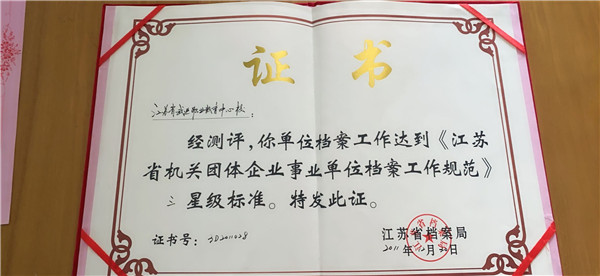 证书
江苏省武进职业教育中心校：
经测评，你单位档案工作达到《江苏
省机关团体企业事业单位档案工作规范》
三星级标准。特发此证。
证书号：
江苏省档案局
2011年12月22日